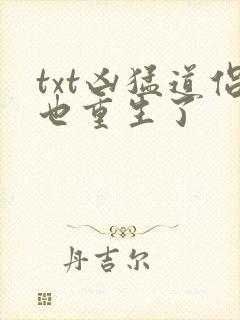 txt凶猛道侣
也重生了
丹吉尔